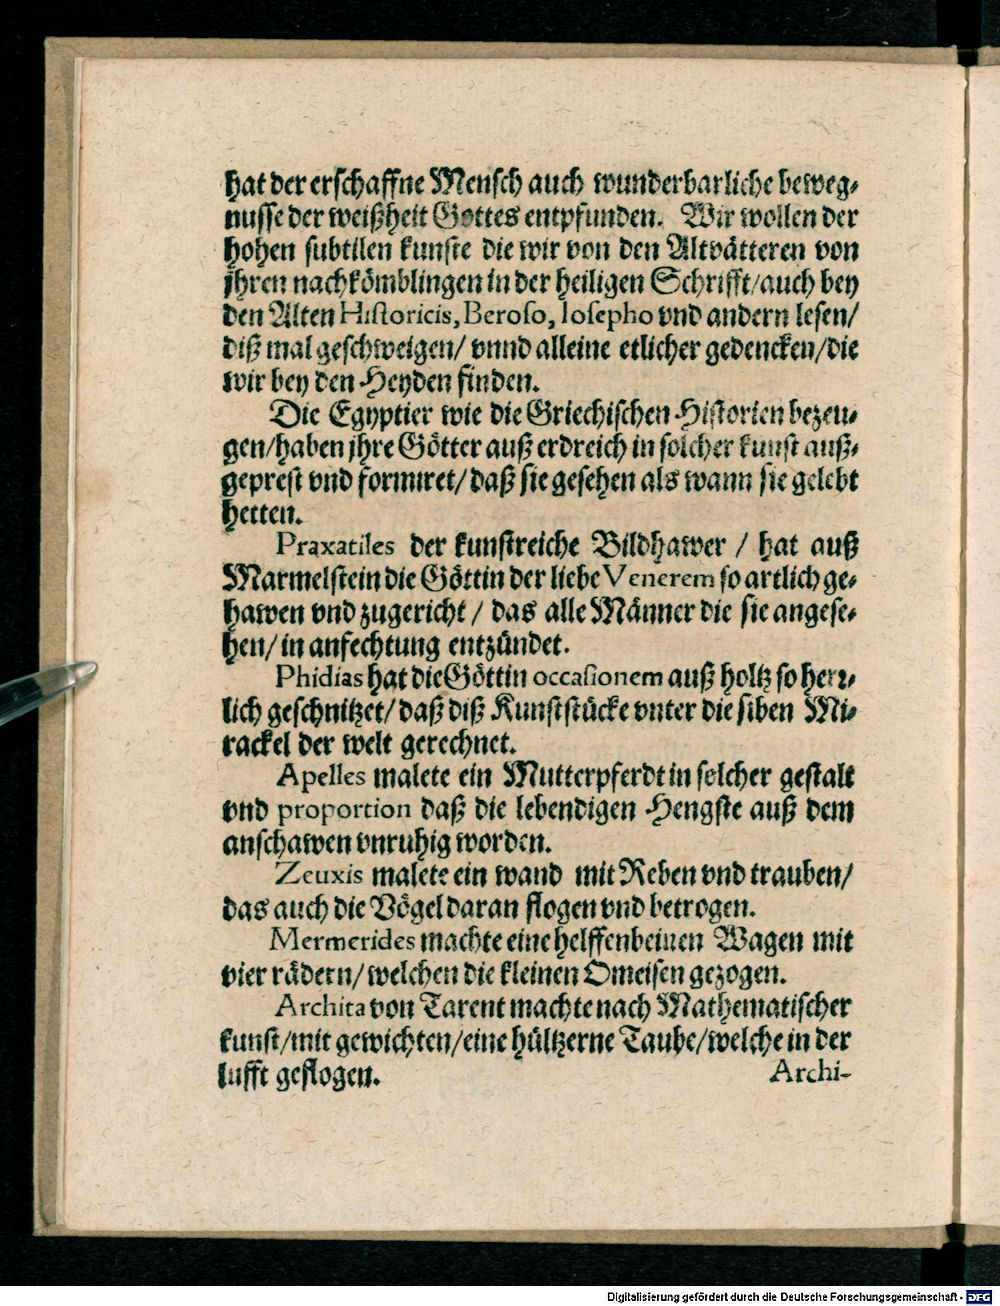 hat der erschaffne Mensch auch wunderbarliche beweg-
nusse der weißheit Gottes entpfunden. Wir wollen der
hohen subtilen kunste die wir von den Altvätteren von
jhren nachkömblingen in der heiligen Schrifft/auch bey
den Alten Historicis, Beroso, Iosepho vnd andern lesen/
diß mal geschweigen/ vnnd alleine etlicher gedencken/die
wir bey den Heyden finden.
Die Egyptier wie die Griechischen Historien bezeu-
gen/haben jhre Götter auß erdreich in solcher kunst auß-
geprest vnd formiret/ daß sie gesehen als wann sie gelebt
hetten.
Praxatiles der kunstreiche Bildhawer / hat auß
Marmelstein die Göttin der liebe Venerem so artlich ge-
hawen vnd zugericht / das alle Männer die sie angese-
hen/ in anfechtung entzündet.
Phidias hat die Göttin occasionem auß holtz so herr-
lich geschnitzet/ daß diß Kunststücke vnter die siben Mi-
rackel der welt gerechnet.
Apelles malete ein Mutterpferdt in solcher gestalt
vnd proportion daß die lebendigen Hengste auß dem
anschawen vnruhig worden.
Zeuxis malete ein wand mit Reben vnd trauben/
das auch die Vögel daran flogen vnd betrogen.
Mermerides machte eine helffenbeinen Wagen mit
vier rädern/ welchen die kleinen Omeisen gezogen.
Archita von Tarent machte nach Mathematischer
kunst/mit gewichten/eine hültzerne Taube/welche in der
lufft geflogen.
Archi-
Digitalisierung gefördert durch die Deutsche Forschungsgemeinschaft - DFG